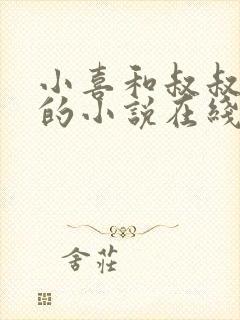 小喜和叔叔
的小說在綫
舍莊